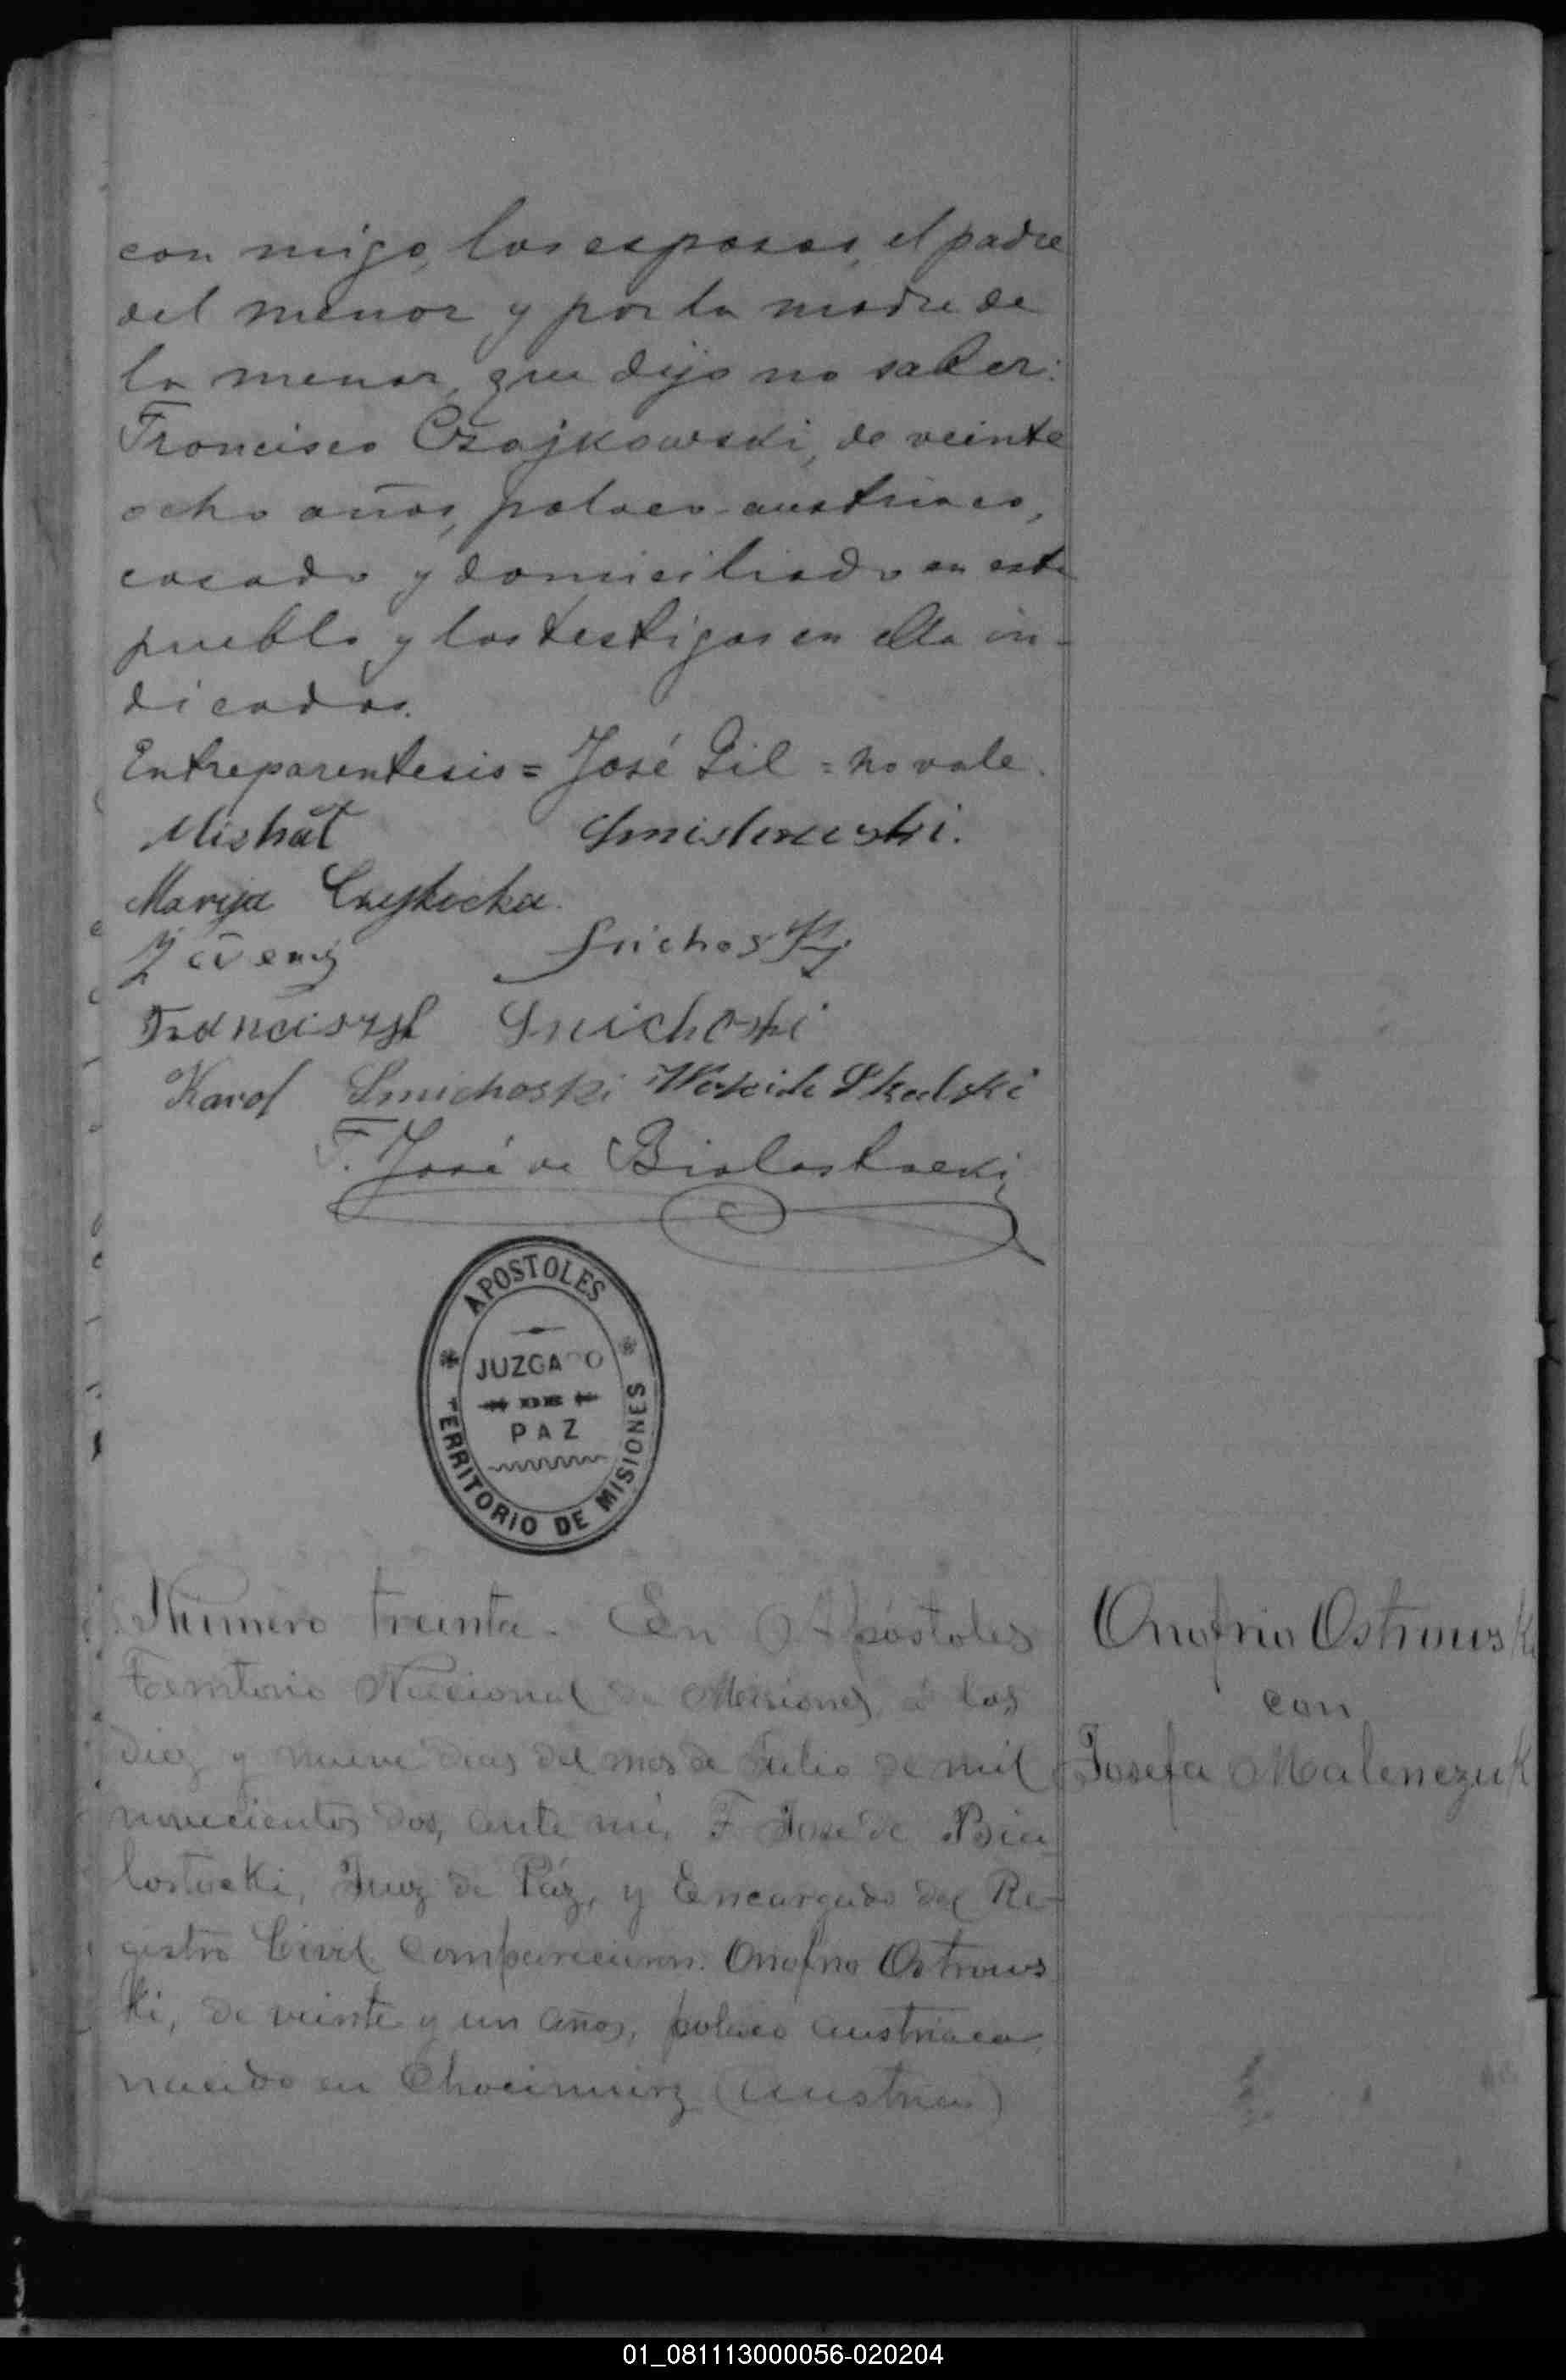 con migo, los esposos, el padre
del menor y por la madre de
la menor, que dijo no saber:
Francisco Czajkowski, de veinte
ocho años, polaco-austriaco,
casado y domiciliado en este
pueblo y los testigos en ella in-
dicados.
Entreparentesis = José Gil = no vale.
Michał
Marija
Snichoski
Karol Smichoski Skalski
F. José de Bialostocki
APOSTOLES
JUZGADO
DE
PAZ
TERRITORIO DE MISIONES
Número treinta. En Apóstoles
Territorio Nacional de Misiones, á los
diez y nueve dias del mes de Julio de mil
novecientos dos, ante mi, F José de Bia
lostocki, Juez de Páz, y Encargado del Re-
gistro Civil comparecieron: Onofrio Ostrows
ki, de veinte y un años, polaco austriaco,
nacido en Chocimirz (Austria)
Onofrio Ostrowski
con
Josefa Malenczuk
01_081113000056-020204